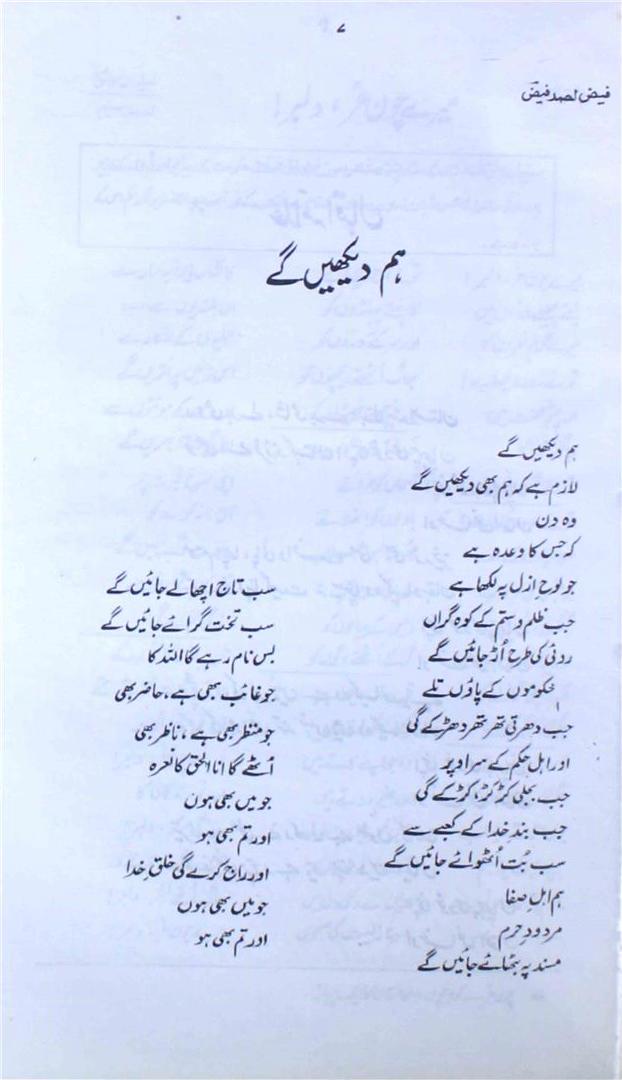 ۷
فیض احمد فیض
ہم دیکھیں گے
ہم دیکھیں گے
لازم ہے کہ ہم بھی دیکھیں گے
وہ دن
کہ جس کا وعدہ ہے
جو لوحِ ازل پہ لکھا ہے
جب ظلم و ستم کے کوہ گراں
روئی کی طرح اُڑ جائیں گے
محکوموں کے پاؤں تلے
جب دھرتی تھر تھر دھڑکے گی
اور اہل حکم کے سر اوپر
جب بجلی کڑ کڑ کڑکے گی
جب بندِ خدا کے کعبے سے
سب بُت اُٹھوائے جائیں گے
ہم اہلِ صفا
مردودِ حرم
مسند پہ بٹھائے جائیں گے
سب تاج اچھالے جائیں گے
سب تخت گرائے جائیں گے
بس نام رہے گا اللہ کا
جو غائب بھی ہے، حاضر بھی
جو منظر بھی ہے، ناظر بھی
اُٹھے گا انا الحق کا نعرہ
جو میں بھی ہوں
اور تم بھی ہو
اور راج کرے گی خلقِ خدا
جو میں بھی ہوں
اور تم بھی ہو